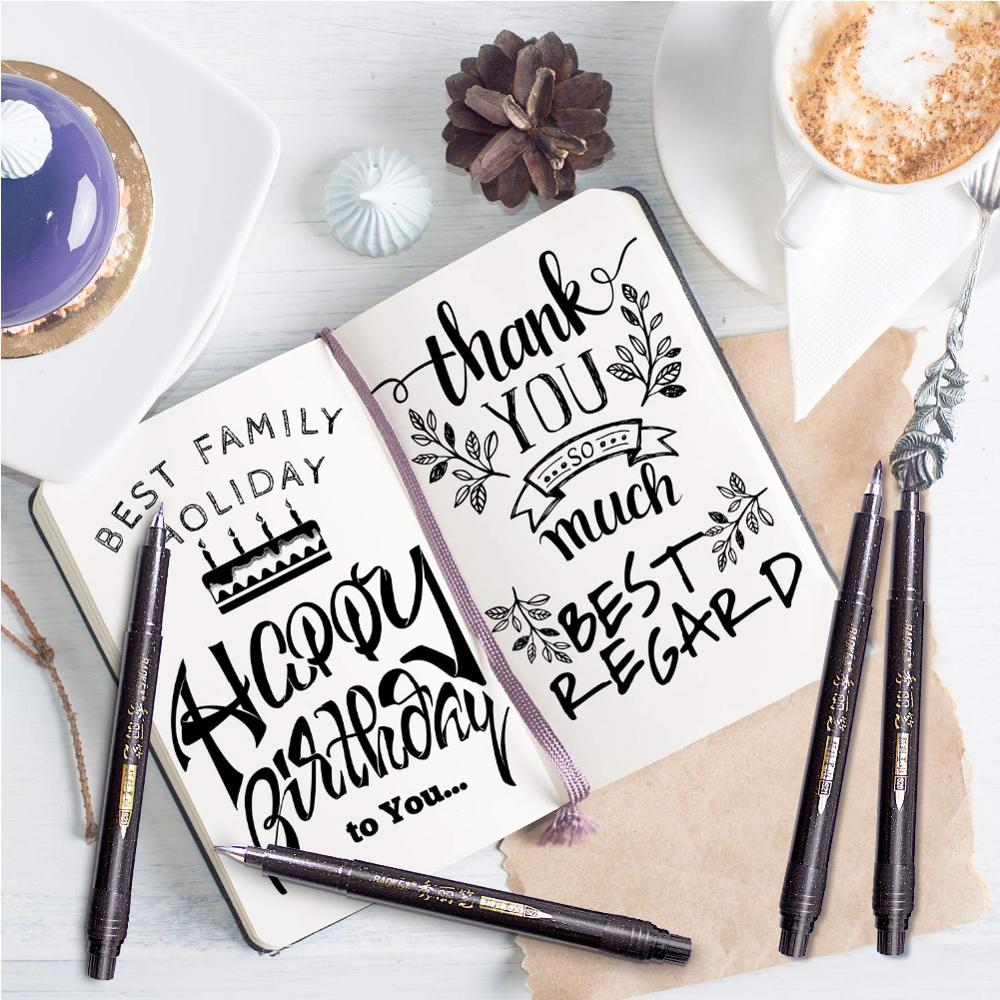 BEST FAMILY
HOLIDAY
HAPPY
BIRTHDAY
to You...
thank
YOU
...SO...
much
BEST
REGARD